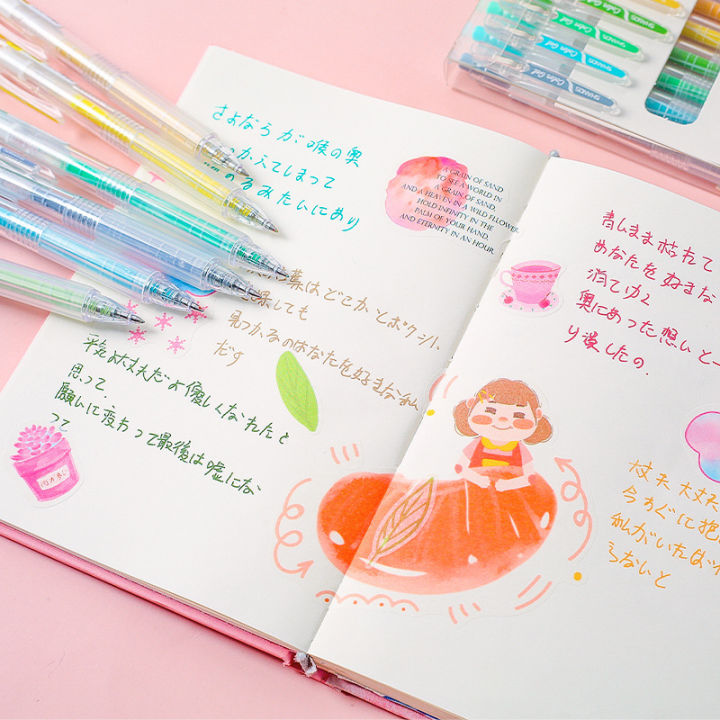 さよならが喉の奥
つかえてしまって
のるみたいにあり
A GRAIN OF SAND
TO SEE A WORLD IN
A GRAIN OF SAND.
AND A HEAVEN IN A WILD FLOWER
HOLD INFINITY IN THE
PALM OF YOUR HAND.
AND ETERNITY IN AN HOUR.
はどこかとボクシ
しても
見つかるのはあなたを好きな私
だす
平気よ大丈夫だよ優しくなれたと
思って.
願いに変わって最後は嘘にな
って
青しまま枯れて
あなたを好きな
消てゆく
奥にあった想いと一
り凌したの.
大丈夫 大丈夫
今すぐに抱
私がいたばれ
らないと
Color Gel SHANDS
Color Gel SHANDS
Color Gel SHANDS